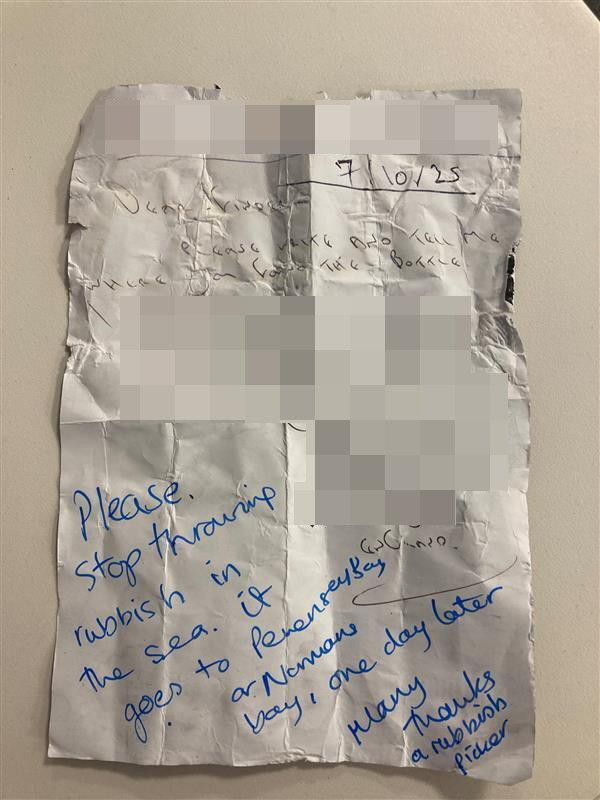 7/10/25
Dear Finder
Please write and tell me
where you found the bottle
England.
Please.
Stop throwing
rubbish in
the sea. it
goes to Pevensey Bay
or Normans
bay, one day later
Many
Thanks
a rubbish
picker